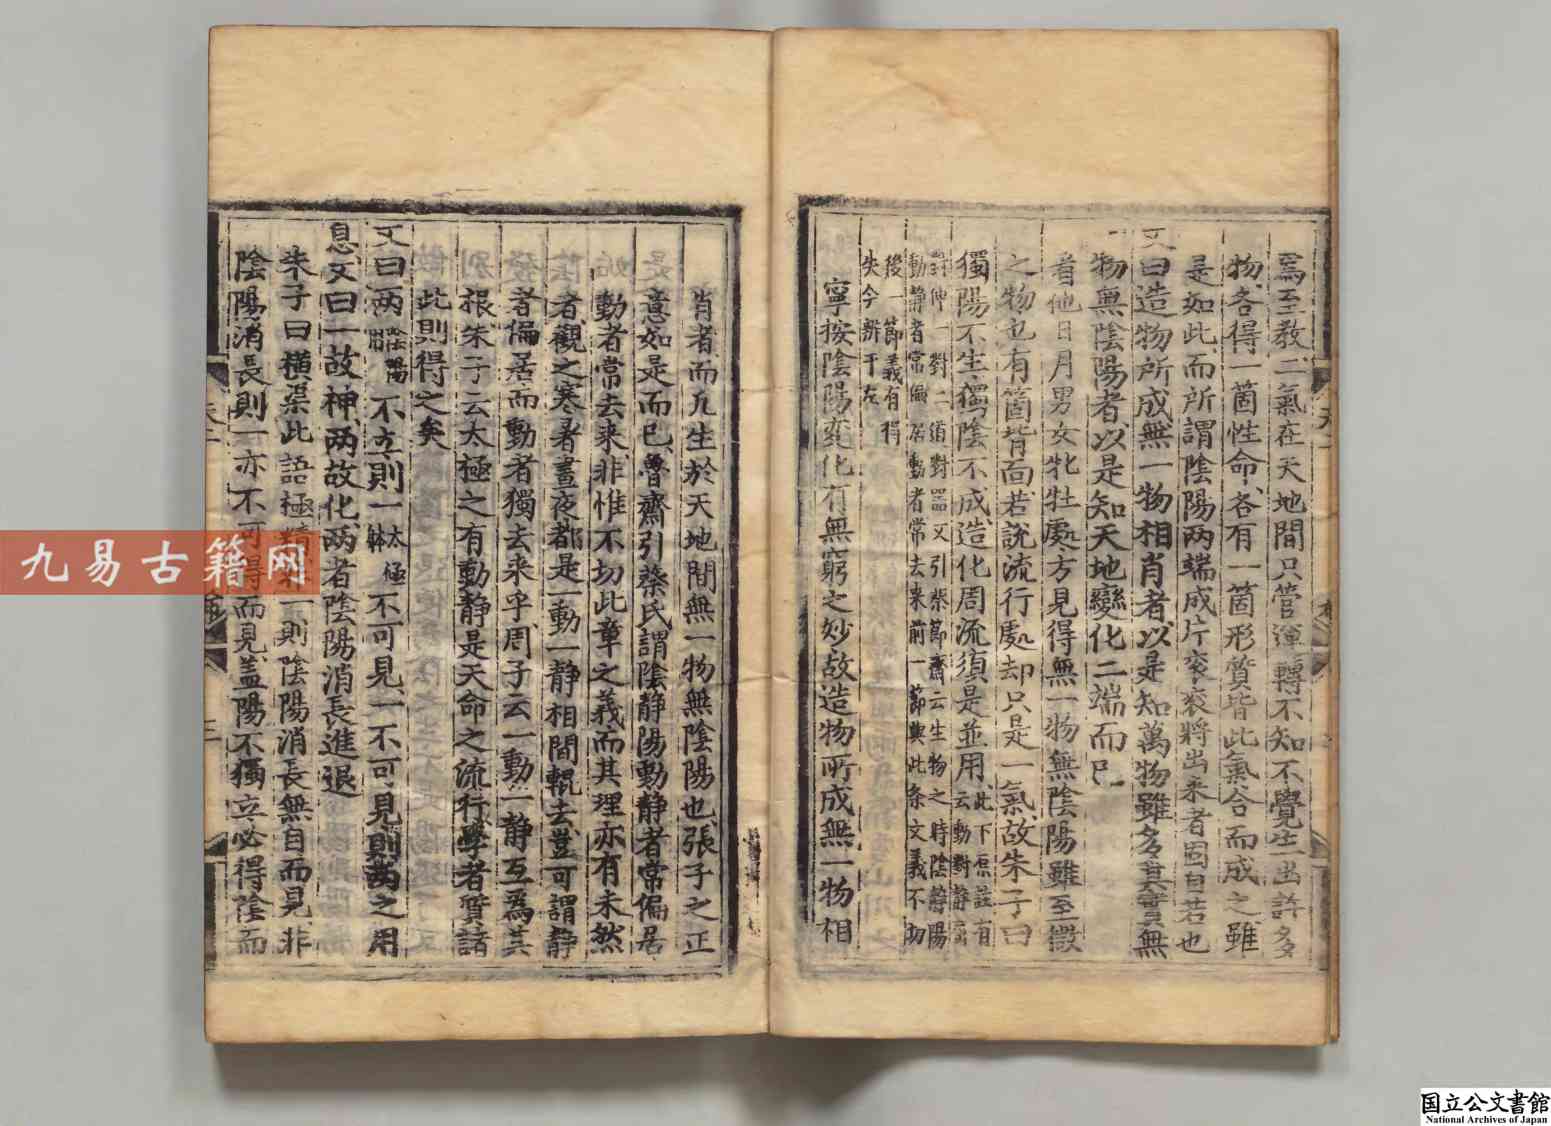 焉至教二氣在天地間只管運轉不知不覺生出許多
物各得一箇性命各有一箇形質皆此氣合而成之雖
是如此而所謂陰陽兩端成片衮衮將出來者固自若也
又曰造物所成無一物相肖者以是知萬物雖多其實無一
物無陰陽者以是知天地變化二端而已
看他日月男女牝牡處方見得無一物無陰陽雖至微
之物也有箇背面若說流行處却只是一氣故朱子曰
獨陽不生獨陰不成造化周流須是並用此下原註有
云動對靜
對伸一對二須對器又引蔡節齋云生物之時陰靜陽
動靜者常偏居動者常去來前一節與此條文義不切
後一節義有得
失今斷于左
寧按陰陽変化有無窮之妙故造物所成無一物相
肖者而凢生於天地間無一物無陰陽也張子之正
意如是而已魯齋引蔡氏謂陰静陽動静者常偏居
動者常去来非惟不切此章之義而其理亦有未然
者觀之寒暑晝夜都是一動一静相間輥去豈可謂静
者偏居而動者獨去来乎周子云一動一静互爲其
根朱子云太極之有動静是天命之流行學者質諸
此則得之矣
又曰两陰陽不立則一太極不可見一不可見則两之用
息又曰一故神两故化两者陰陽消長進退
朱子曰橫渠此語極精一則陰陽消長無自而見非
陰陽消長則一亦不可得而見盖陽不獨立必得陰而
九易古籍网
国立公文書館
National Archives of Japan